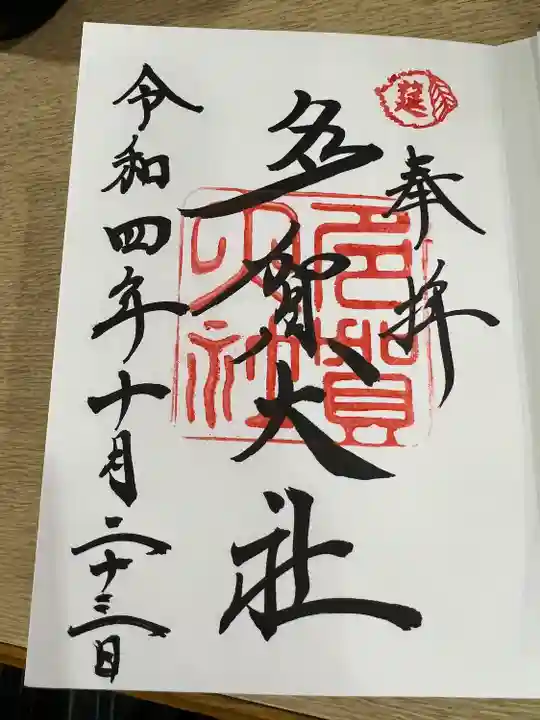 莚
奉拝
多賀大社
多賀大社
令和四年十月二十三日